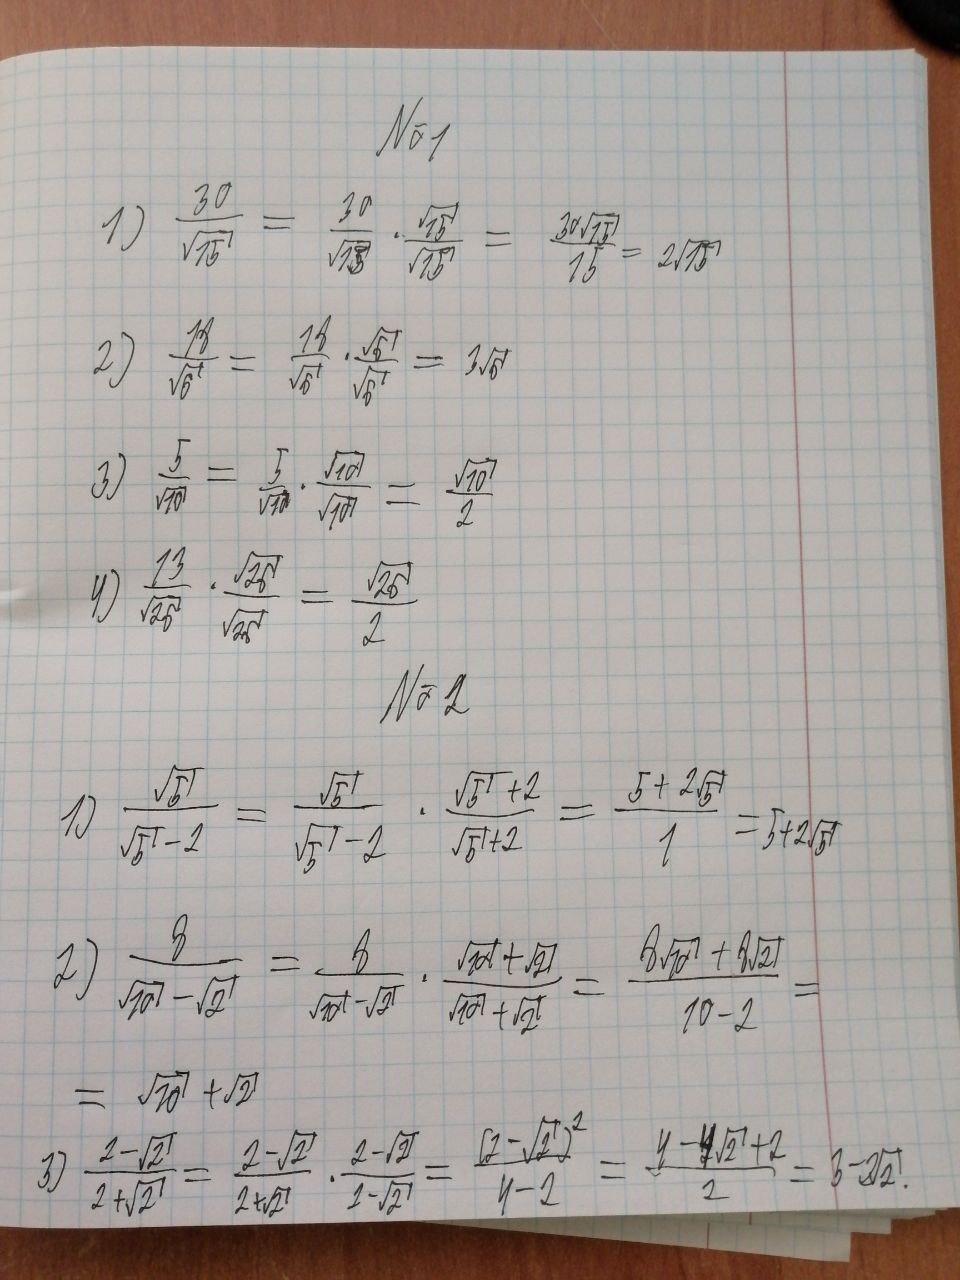 №1
1) 30/√15 = 30/√15 · √15/√15 = 30√15/15 = 2√15
2) 18/√6 = 18/√6 · √6/√6 = 3√6
3) 5/√10 = 5/√10 · √10/√10 = √10/2
4) 13/√26 · √26/√26 = √26/2
№2
1) √5/(√5-2) = √5/(√5-2) · (√5+2)/(√5+2) = (5+2√5)/1 = 5+2√5
2) 8/(√10-√2) = 8/(√10-√2) · (√10+√2)/(√10+√2) = (8√10+8√2)/(10-2) =
= √10+√2
3) (2-√2)/(2+√2) = (2-√2)/(2+√2) · (2-√2)/(2-√2) = (2-√2)²/(4-2) = (4-4√2+2)/2 = 3-2√2.